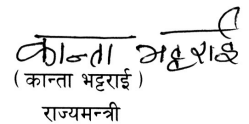 कान्ता भट्टराई
(कान्ता भट्टराई)
राज्यमन्त्री